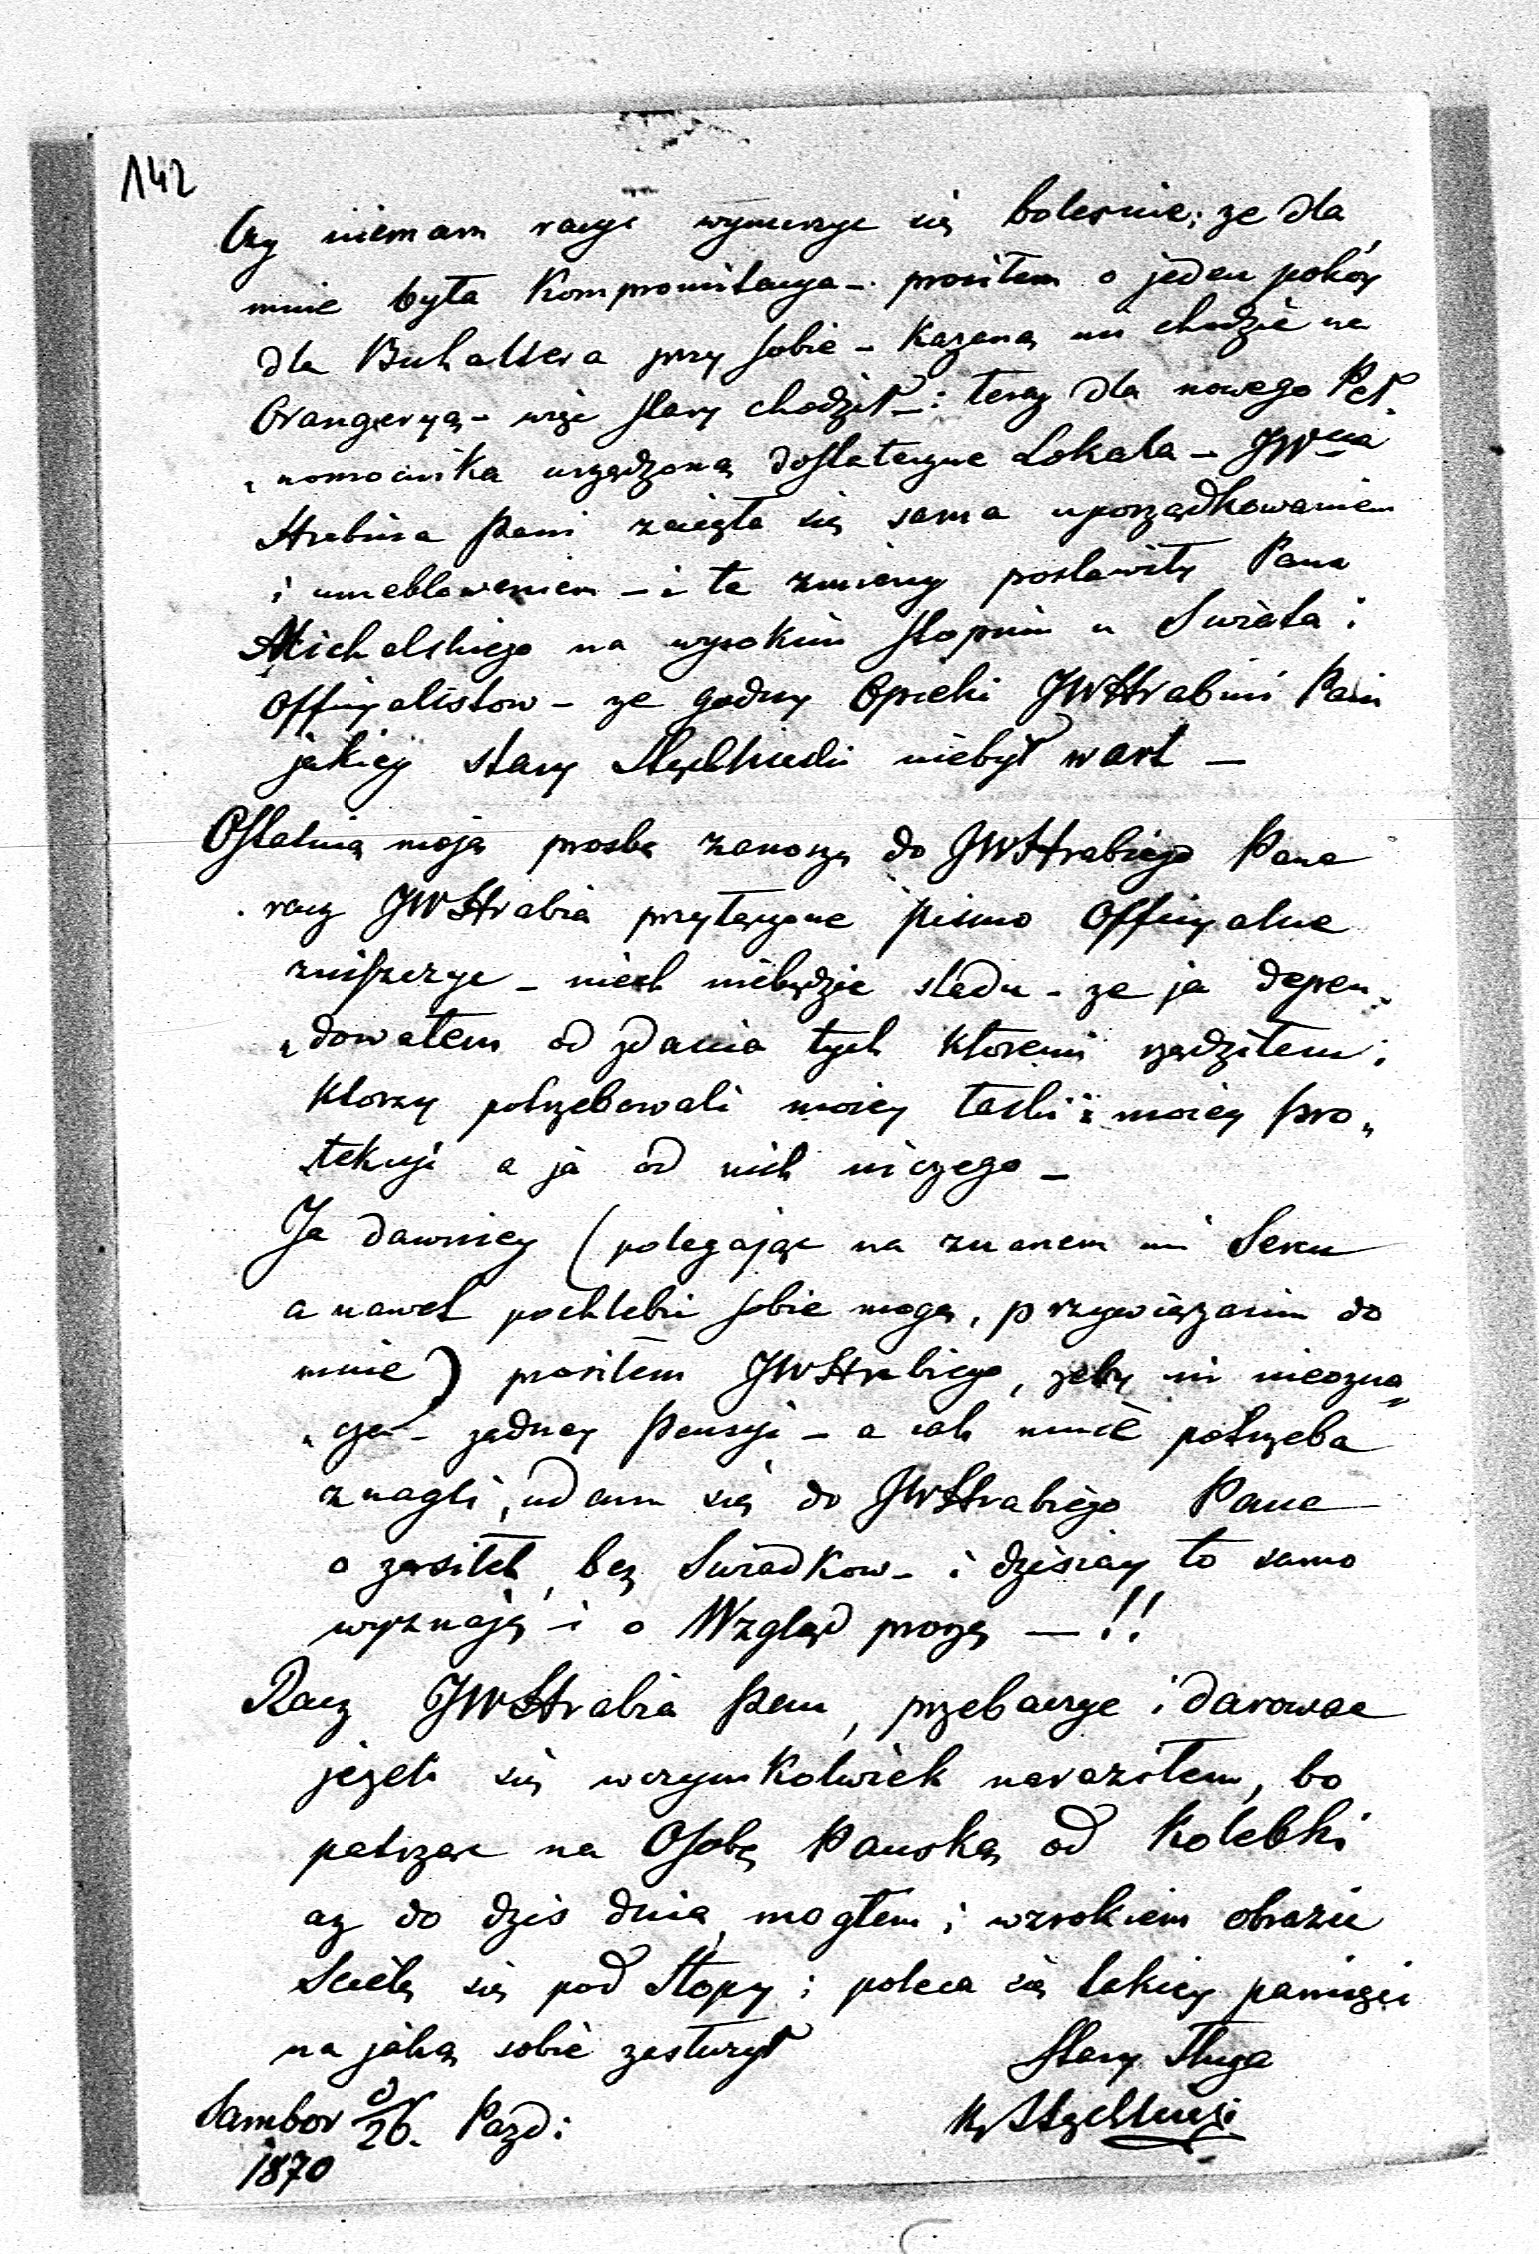 142
Czy niemam racyi wynurzyc się bolesnie; ze dla
mnie była Kompromitacya - prosiłem o jeden pokoy
dla Buhaltera przy sobie - Kazano mi chodzić na
Orangeryą - więc stary chodził -: teraz dla nowego Peł„
„nomocnika urządzono dostateczne Lokala - JWna
Hrabina Pani zaięła się sama uporządkowaniem
i umeblowaniem - i te zmiany postawiły Pana
Michalskiego na wysokim stopniu u Swiata i
Officyalistow - ze godny Opieki JWHrabini Pani
jakiey stary niebył wart -
Ostatnią moją prosbę zanoszę do JWHrabiego Pana
racz JWHrabia przyłączone pismo Officyalne
zniszczyc - niech niebędzie sladu - ze ja depen„
„dowałem od zdania tych ktoremi rządziłem i
ktorzy potrzebowali moiey łaski i moiey pro„
tekcyi a ja od nich niczego -
Ja dawniey (polegając na znanem mi Sercu
a nawet pochlebić sobie mogę, przywiązaniu do
mnie) prosiłem JWHrabiego, zeby mi nieozna„
„czał żadney Pensyi - a iak mnie potrzeba
znagli, udam się do JWHrabiego Pana
o zasiłek, bez Swiadkow - i dzisiay to samo
wyznaję i o Wzgląd proszę - !!
Racz JWHrabia Pan, przebaczyc i darowac
jezeli się wczymkolwiek naraziłem, bo
patrząc na Osobę Panską od Kolebki
az do dzis dnia, mogłem i wzrokiem obrazić
Scielę się pod Stopy i poleca się takiey pamięci
na jaką sobie zasłuzył
Stary Sługa
Sambor d/26. Pazd:
1870